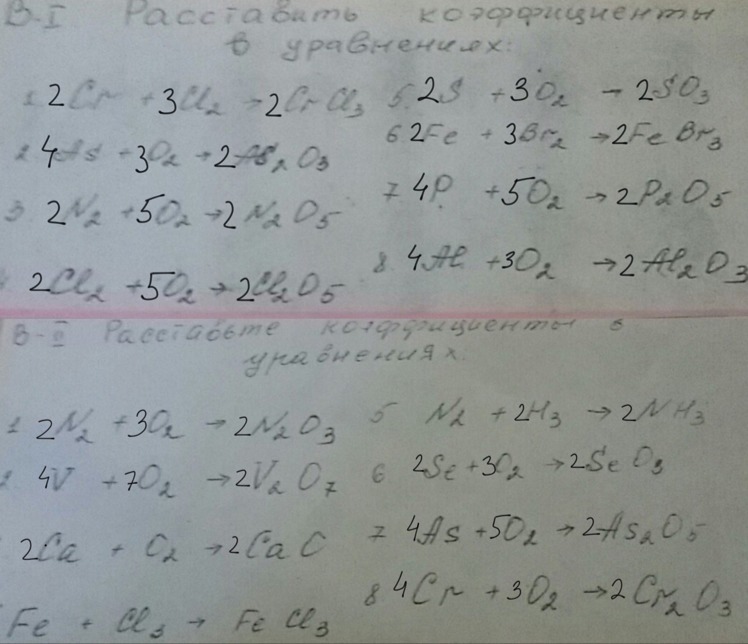 В-I Расставить коэффициенты
в уравнениях:
1 2Cr + 3Cl₂ → 2CrCl₃
2 4As + 3O₂ → 2As₂O₃
3 2N₂ + 5O₂ → 2N₂O₅
2Cl₂ + 5O₂ → 2Cl₂O₅
5 2S + 3O₂ → 2SO₃
6 2Fe + 3Br₂ → 2FeBr₃
7 4P + 5O₂ → 2P₂O₅
8 4Al + 3O₂ → 2Al₂O₃
В-II Расставьте коэффициенты в
уравнениях:
1 2N₂ + 3O₂ → 2N₂O₃
2 4V + 7O₂ → 2V₂O₇
2Ca + C₂ → 2CaC
Fe + Cl₃ → FeCl₃
5 N₂ + 2H₃ → 2NH₃
6 2Se + 3O₂ → 2SeO₃
7 4As + 5O₂ → 2As₂O₅
8 4Cr + 3O₂ → 2Cr₂O₃